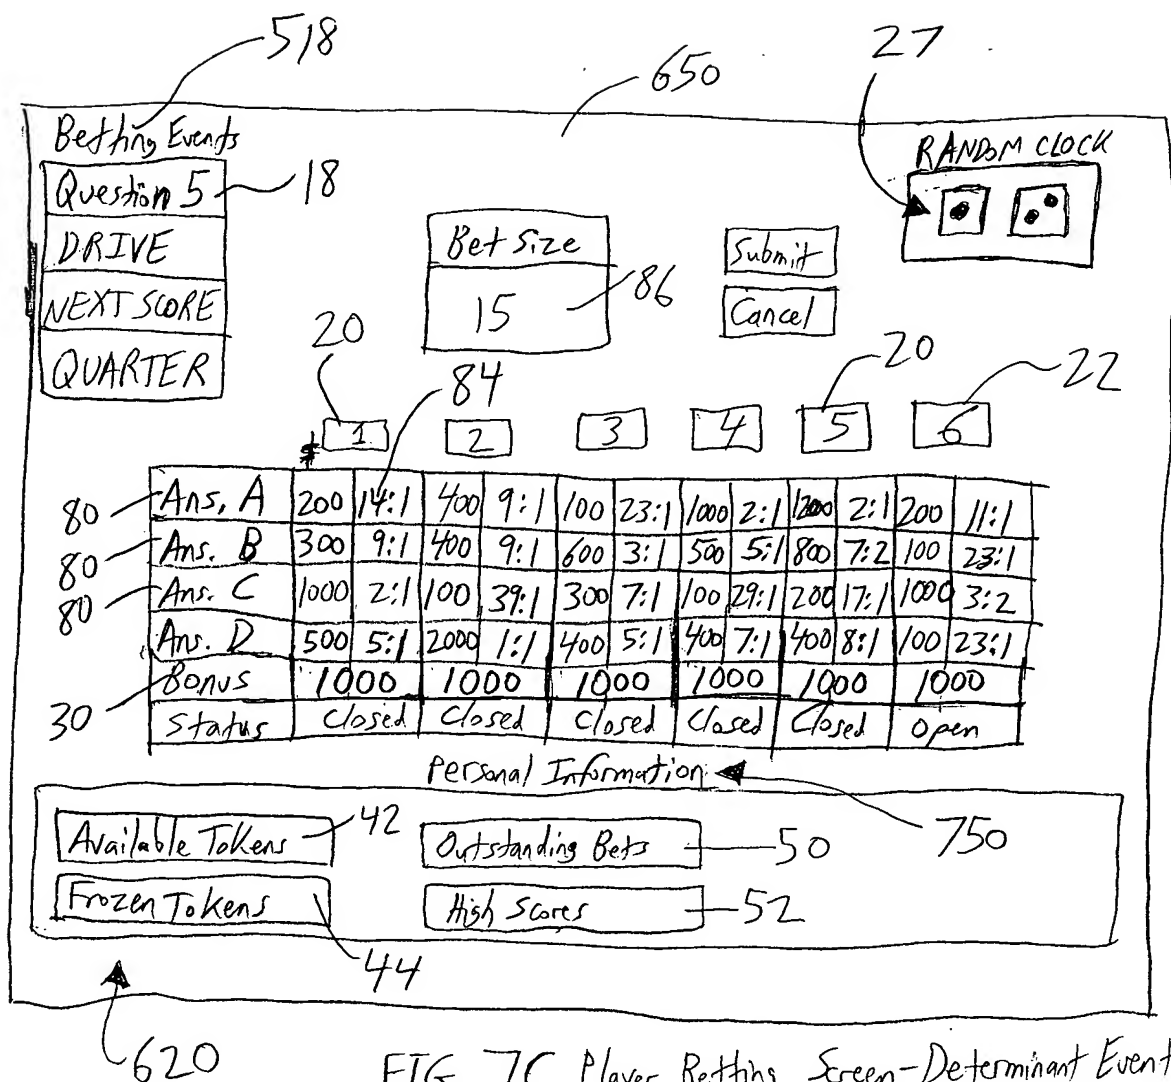 518
27
650
Betting Events
RANDOM CLOCK
Question 5
18
DRIVE
Bet Size
Submit
NEXT SCORE
15
86
Cancel
QUARTER
20
84
20
22
$
1 2 3 4 5 6
80 Ans. A 200 14:1 400 9:1 100 23:1 1000 2:1 1200 2:1 200 11:1
80 Ans. B 300 9:1 400 9:1 600 3:1 500 5:1 800 7:2 100 23:1
80 Ans. C 1000 2:1 100 39:1 300 7:1 100 29:1 200 17:1 1000 3:2
Ans. D 500 5:1 2000 1:1 400 5:1 400 7:1 400 8:1 100 23:1
Bonus 1000 1000 1000 1000 1000 1000
30
Status Closed Closed Closed Closed Closed Open
Personal Information
750
Available Tokens 42 Outstanding Bets 50
Frozen Tokens High Scores 52
44
620
FIG 7C Player Betting Screen-Determinant Event